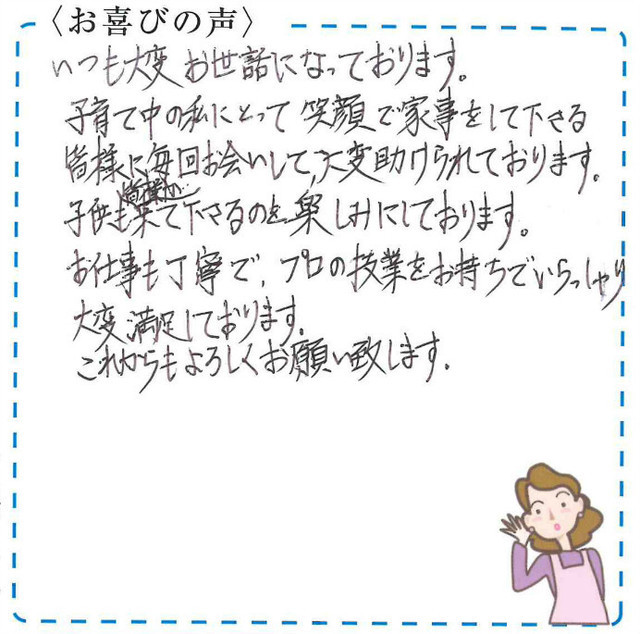 〈お喜びの声〉
いつも大変お世話になっております。
子育て中の私にとって笑顔で家事をして下さる
皆様に毎回お会いして、大変助けられております。
皆様が
子供も来て下さるのを楽しみにしております。
お仕事も丁寧で、プロの技業をお持ちでいらっしゃり
大変満足しております。
これからもよろしくお願い致します。